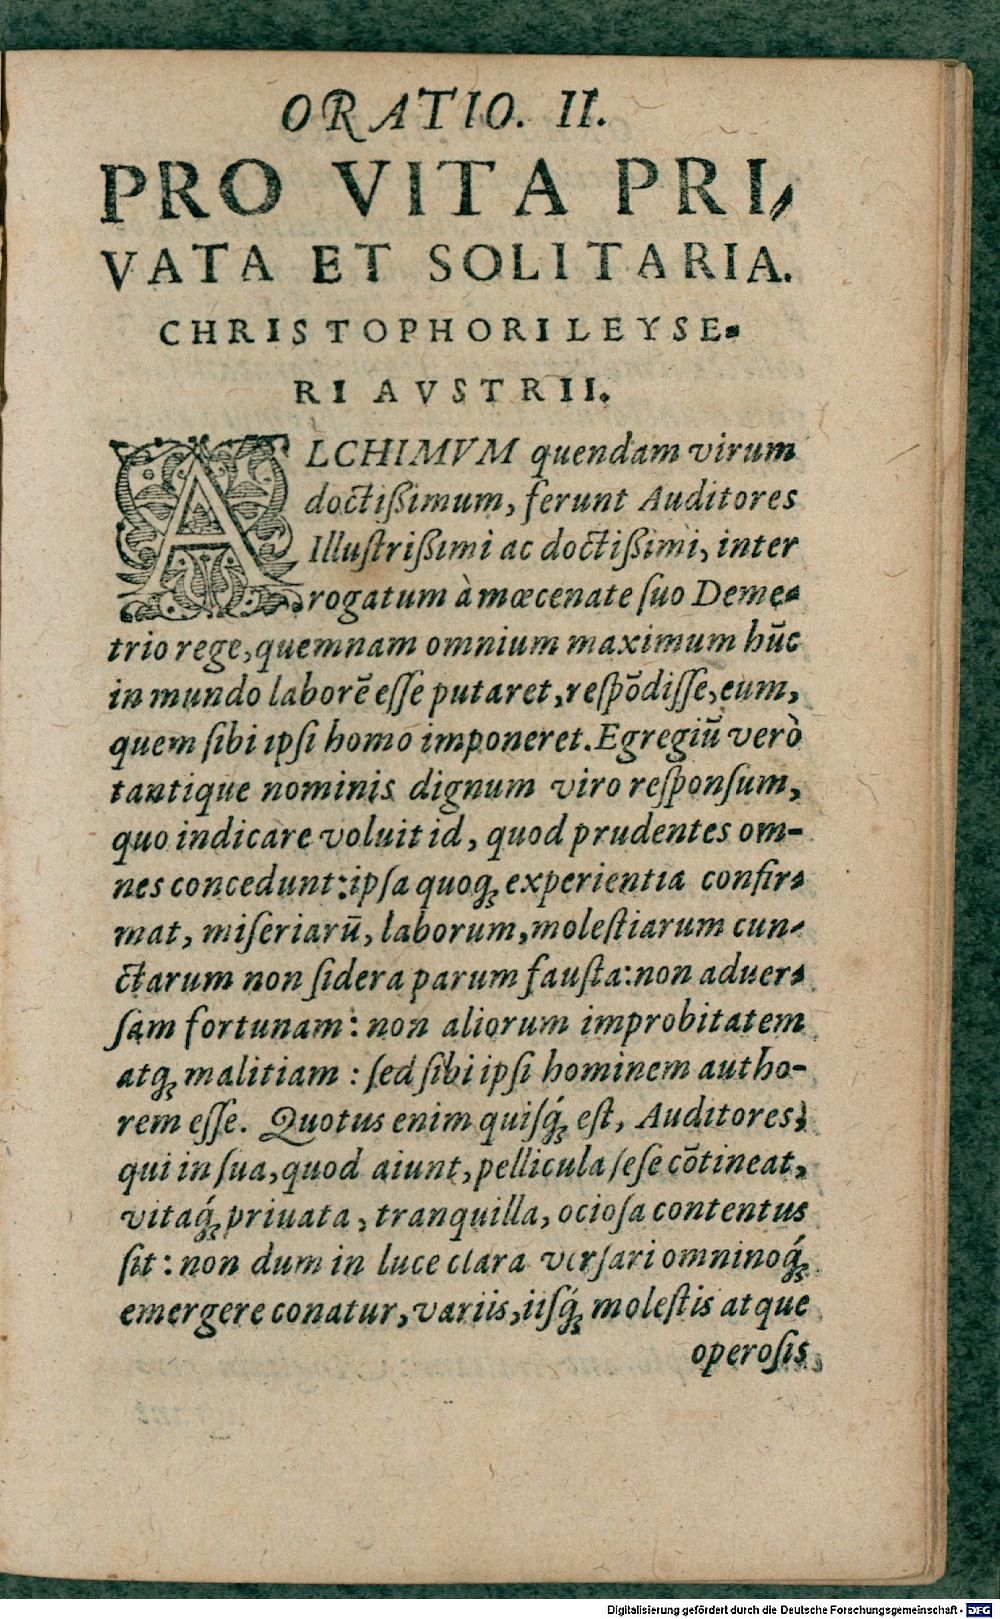 ORATIO. II.
PRO VITA PRI,
VATA ET SOLITARIA.
CHRISTOPHORI LEYSE-
RI AVSTRII.
ALCHIMVM quendam virum
doctißimum, ferunt Auditores
Illuſtrißimi ac doctißimi, inter
rogatum à mœcenate ſuo Deme-
trio rege, quemnam omnium maximum hūc
in mundo laborē eſſe putaret, reſpōdiſſe, eum,
quem ſibi ipſi homo imponeret. Egregiū verò
tantique nominis dignum viro reſponſum,
quo indicare voluit id, quod prudentes om-
nes concedunt: ipſa quoqꝫ experientia confir-
mat, miſeriarū, laborum, moleſtiarum cun-
ctarum non ſidera parum fauſta: non aduer-
ſam fortunam: non aliorum improbitatem
atqꝫ malitiam: ſed ſibi ipſi hominem autho-
rem eſſe. Quotus enim quiſq́ꝫ eſt, Auditores,
qui in ſua, quod aiunt, pellicula ſeſe cōtineat,
vitaq́ꝫ priuata, tranquilla, ocioſa contentus
ſit: non dum in luce clara verſari omninoq́ꝫ
emergere conatur, variis, iiſq́ꝫ moleſtis atque
operoſis
Digitalisierung gefördert durch die Deutsche Forschungsgemeinschaft - DFG